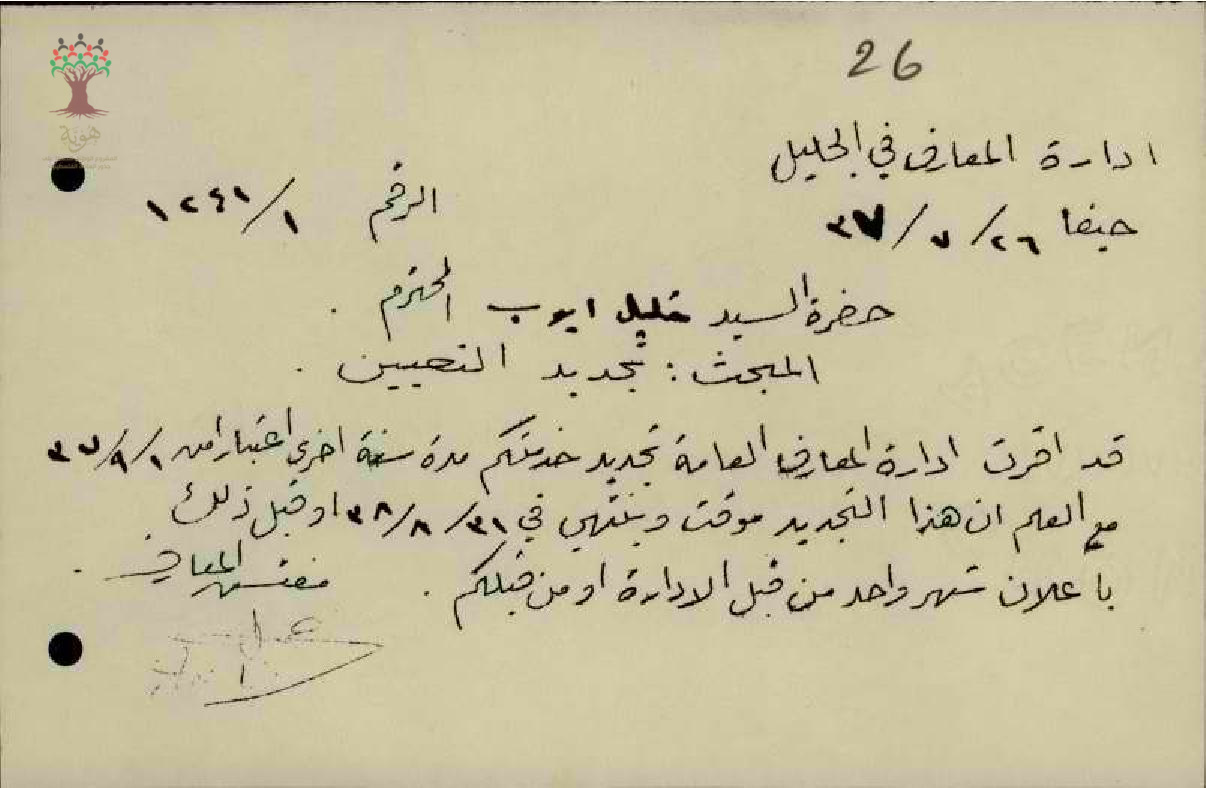 هوية
26
ادارة المعارف في الجليل
حيفا ٢٦/٧/٣٧
الرقم ١/١٢٤١
حضرة السيد خليل ايوب المحترم .
المبحث : تجديد التعيين .
قد اقرت ادارة المعارف العامة تجديد خدمتكم مدة سنة اخرى اعتبارا من ٣٧/٩/١
مع العلم ان هذا التجديد موقت وينتهي في ٣٨/٨/٣١ او قبل ذلك
باعلان شهر واحد من قبل الادارة او من قبلكم .
مفتش المعارف .